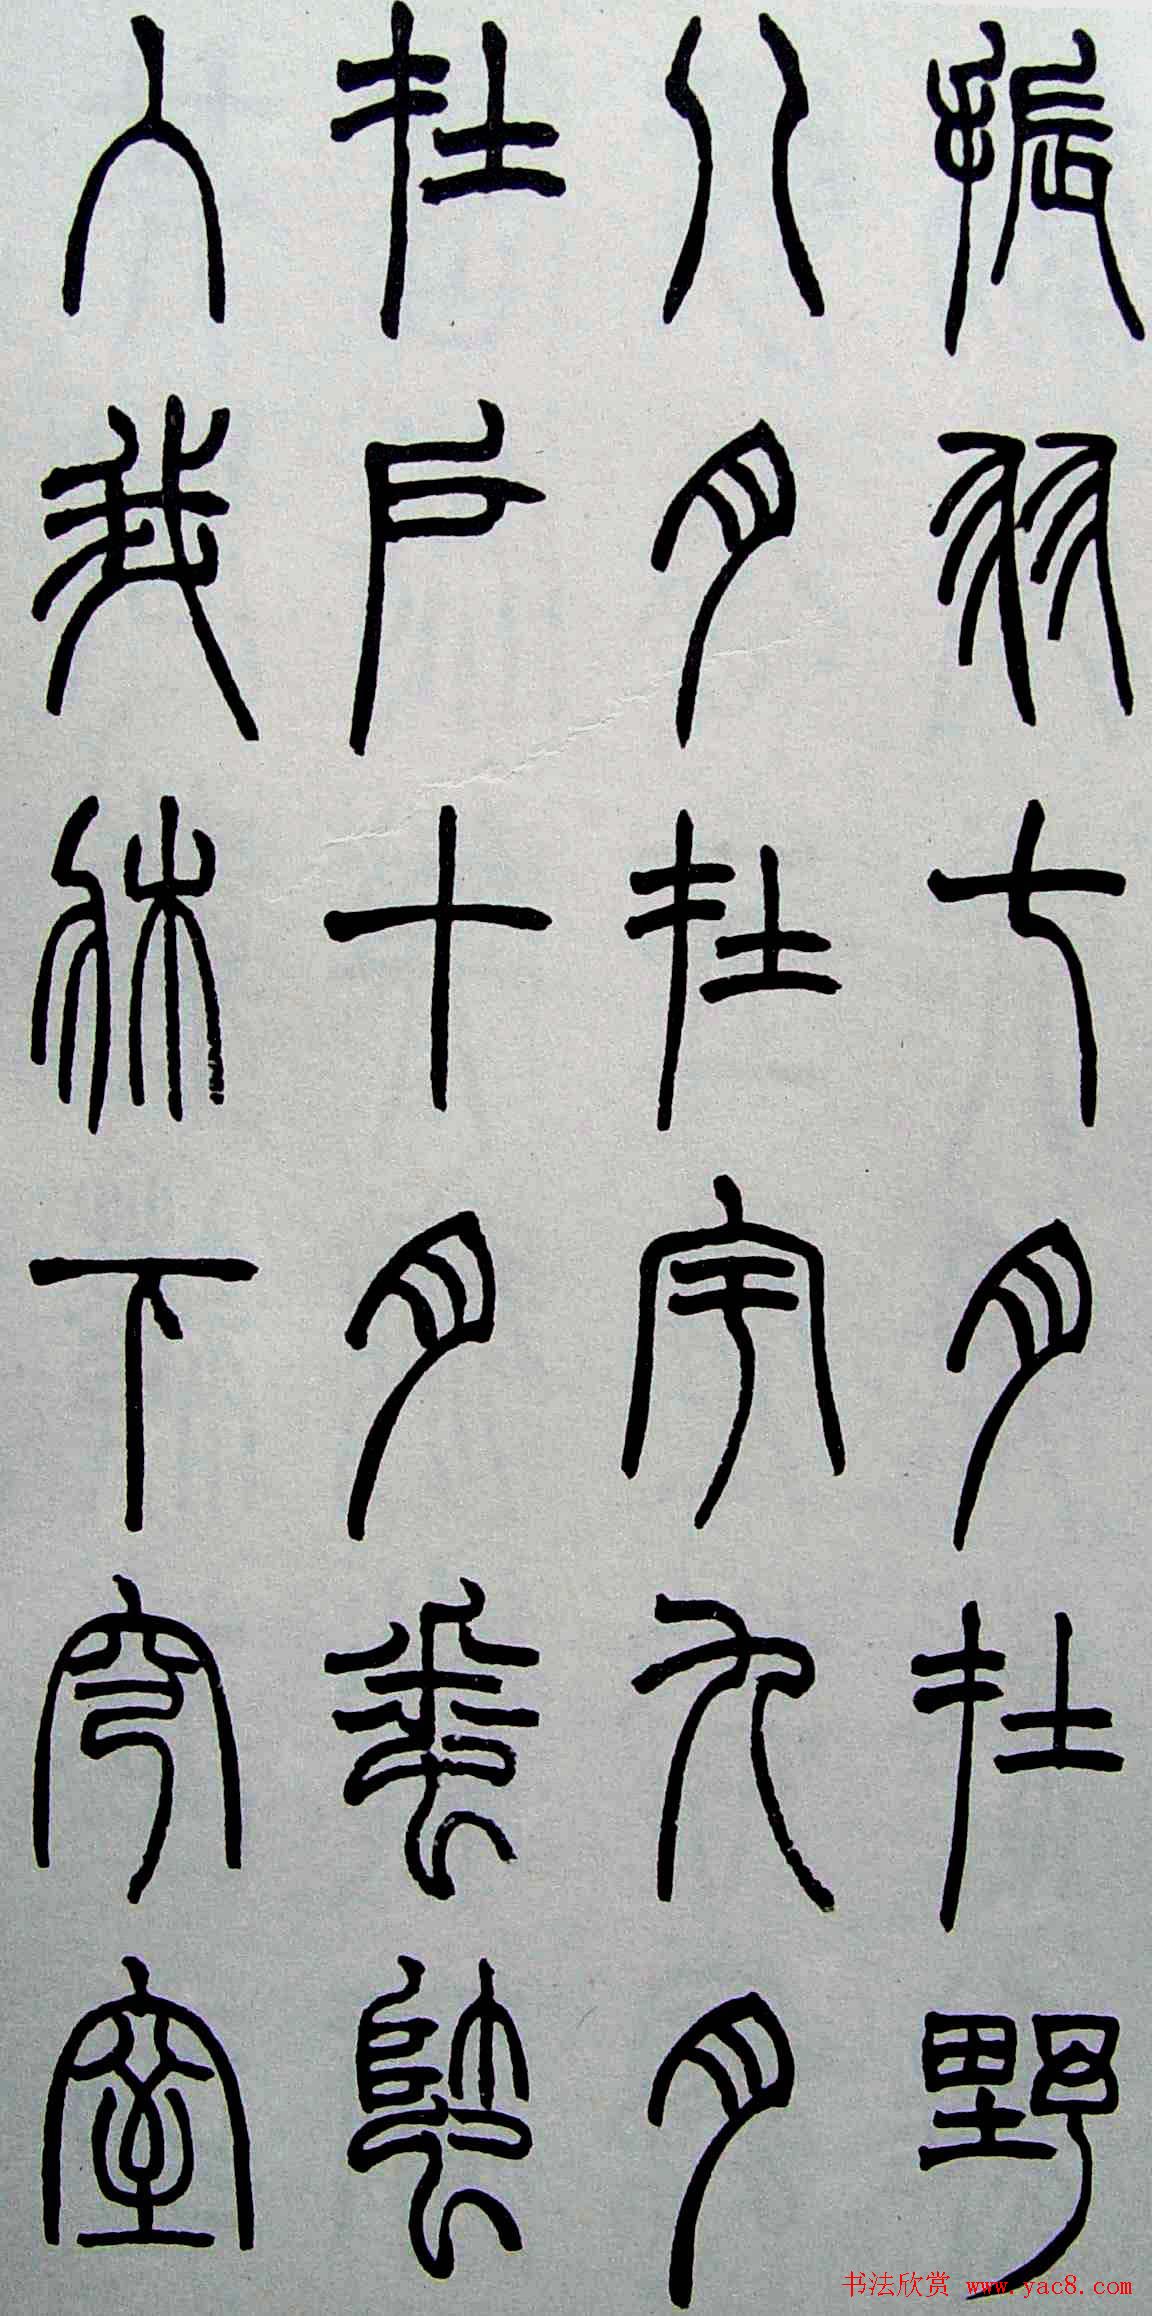 振羽七月在野
八月在宇九月
在户十月蟋蟀
入我牀下穹窒
书法欣赏 www.yac8.com